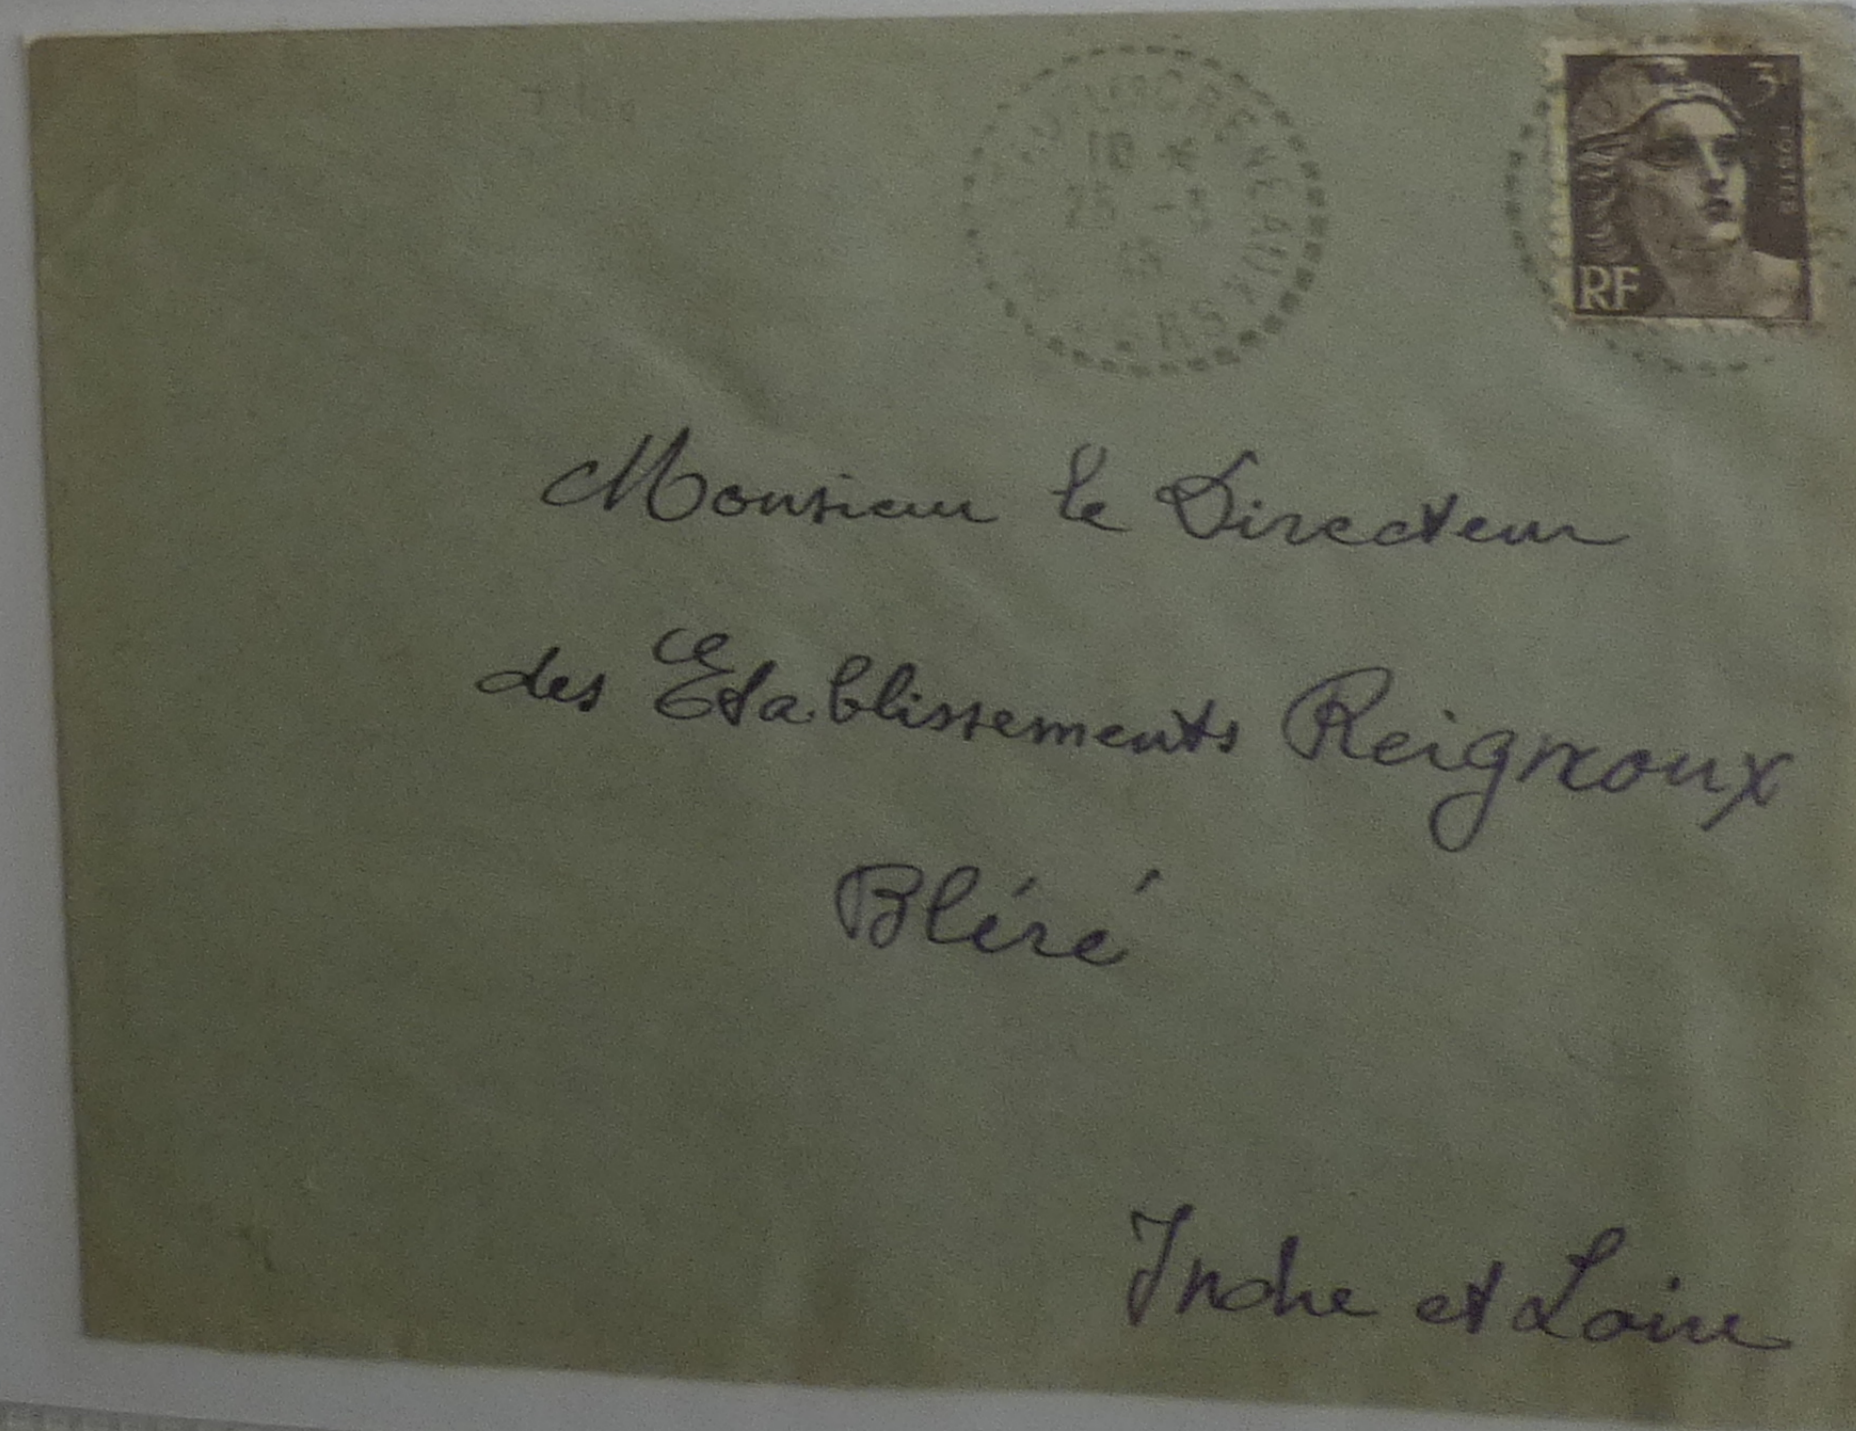 CRENEAUX
GERS
18 *
25 - 5
3F
POSTES
RF
Monsieur le Directeur
des Etablissements Reignoux
Bléré
Indre et Loire